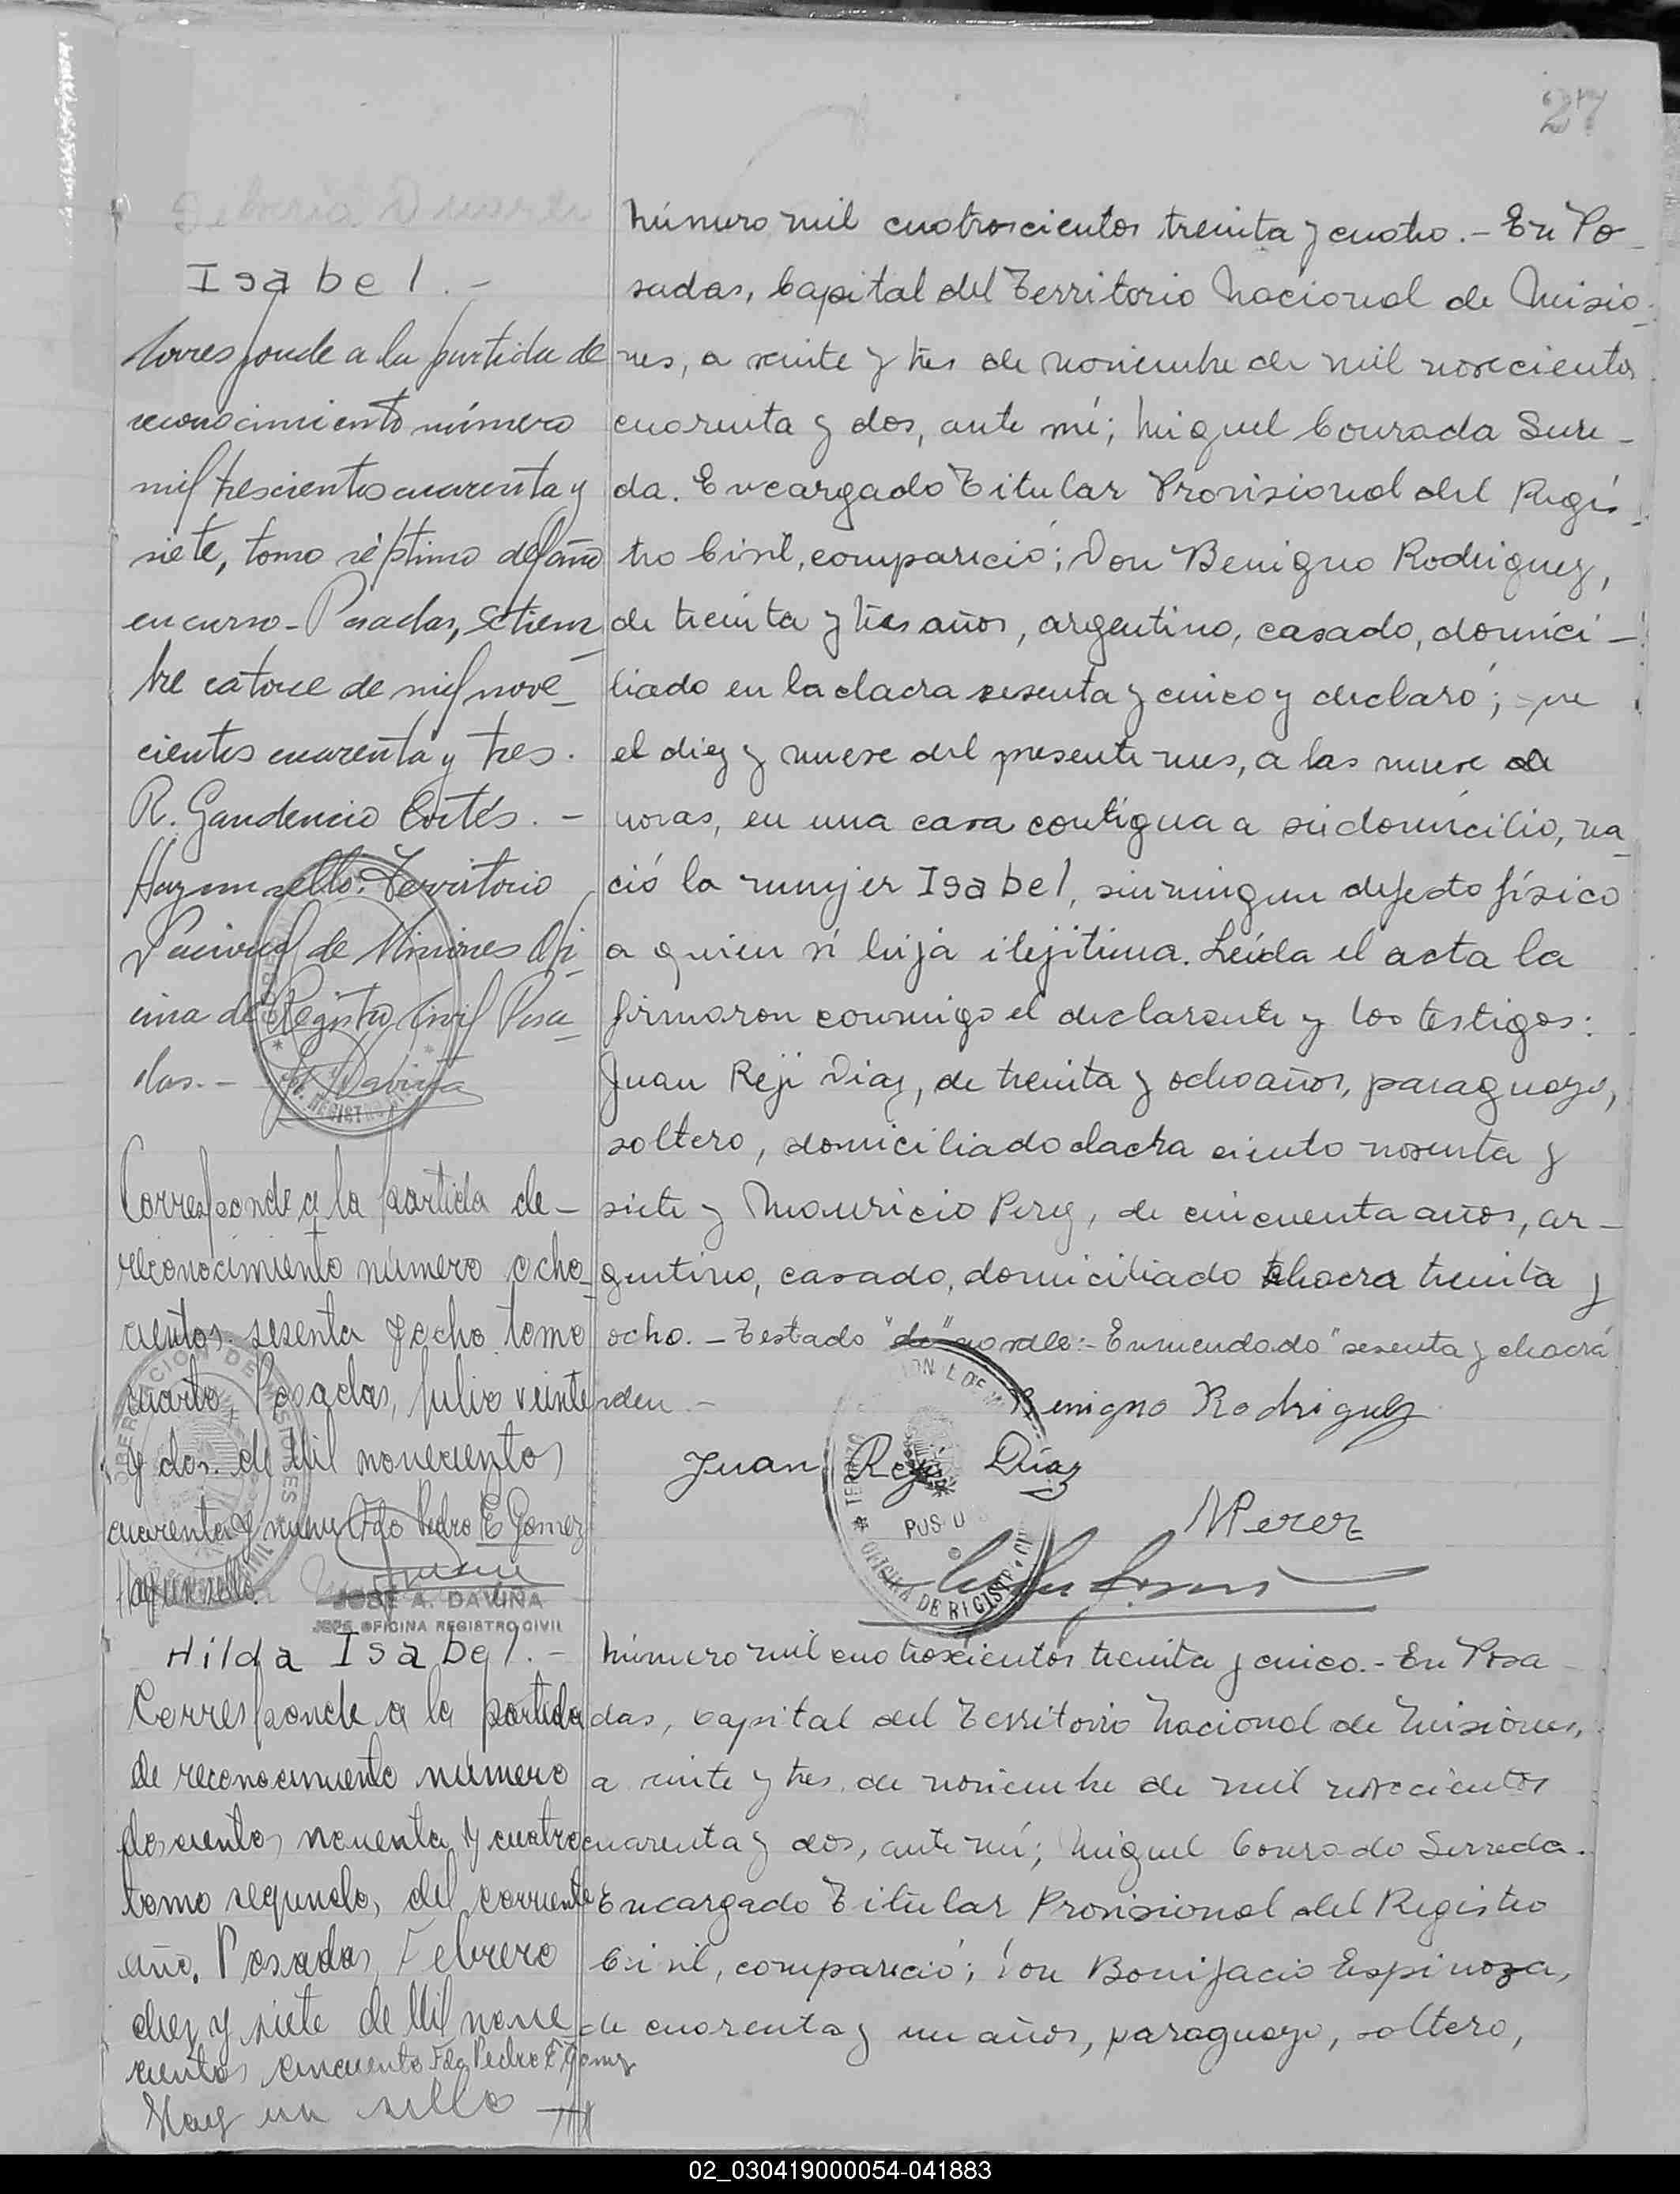 27
Isabel.-
Corresponde a la partida de
reconocimiento número
mil trescientos cuarenta y
siete, tomo séptimo del año
en curso- Posadas, Setiem
bre catorce de mil nove_
cientos cuarenta y tres.
R. Gaudencio Cortés.-
Hay un sello: Territorio
Nacional de Misiones Ofi_
cina del Registro Civil Posa_
das.-
Corresponde a la partida de-
reconocimiento número ocho_
cientos sesenta y ocho tomo
cuarto Posadas, Julio veinte
y dos de Mil novecientos
cuarenta y nueve Fdo Pedro E Gomez
Hay un sello.
JOSE A. DAVIÑA
JEFE OFICINA REGISTRO CIVIL
Número mil cuatroscientos treinta y cuatro.- En Po_
sadas, Capital del Territorio Nacional de Misio_
nes, a veinte y tres de noviembre de mil novecientos
cuarenta y dos, ante mí; Miguel Conrada Sure_
da. Encargado Titular Provisional del Regis_
tro Civil, compareció; Don Benigno Rodriguez,
de treinta y tres años, argentino, casado, domici_
liado en la chacra sesenta y cinco y declaró; que
el diez y nueve del presente mes, a las nueve de
horas, en una casa contigua a su domicilio, na_
ció la mujer Isabel, sin ningun defecto físico
a quien vi hija ilejitima. Leída el acta la
firmaron conmigo el declarante y los testigos:
Juan Reji Diaz, de treinta y ocho años, paraguayo,
soltero, domiciliado chacra ciento noventa y
siete y Mauricio Perez, de cincuenta años, ar_
gentino, casado, domiciliado chacra treinta y
ocho.- Testado "de" no vale:- Enmendado "sesenta y chacra
Benigno Rodriguez
Juan Reji Díaz
MPerez
OFICINA DE REGISTRO
Hilda Isabel.-
Corresponde a la partida
de reconocimiento número
doscientos noventa y cuatro
tomo segundo, del corriente
año. Posadas, Febrero
diez y siete de Mil nove
cientos cincuenta Fdo Pedro E Gomez
Hay un sello
Número mil cuatroscientos treinta y cinco.- En Posa_
das, Capital del Territorio Nacional de Misiones,
a veinte y tres de noviembre de mil novecientos
cuarenta y dos, ante mí; Miguel Conrado Sureda.
Encargado Titular Provisional del Registro
Civil, compareció; Don Bonifacio Espinoza,
de cuarenta y un años, paraguayo, soltero,
02_030419000054-041883